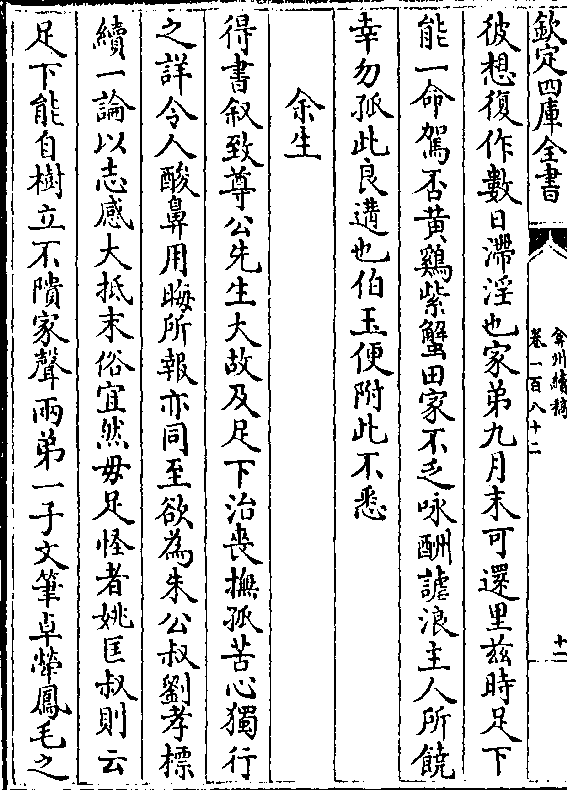 欽定四庫全書
弇州續稿
卷一百八十二
十二
彼想復作數日滯淫也家弟九月末可還里茲時足下
能一命駕否黄鷄紫蟹田家不乏咏酬謔浪主人所饒
幸勿孤此良遘也伯玉便附此不悉
余生
得書叙致尊公先生大故及足下治喪撫孤苦心獨行
之詳令人酸鼻用晦所報亦同至欲為朱公叔劉孝標
續一論以志感大抵末俗宜然毋足怪者姚匡叔則云
足下能自樹立不隤家聲兩弟一子文筆卓犖鳳毛之